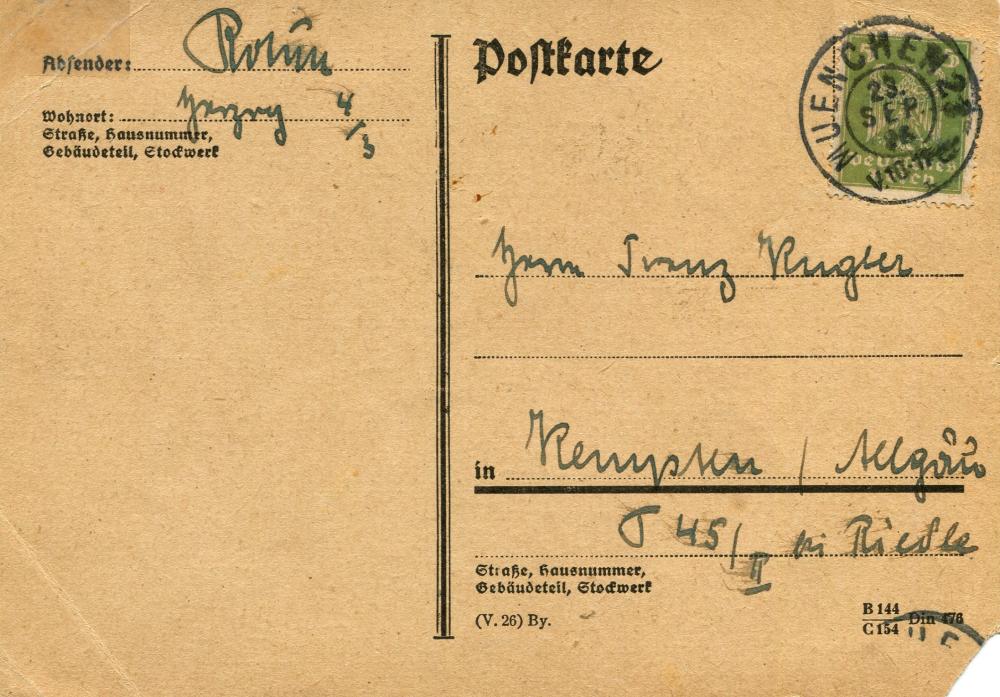 Absender:
Herzog 4/3
Wohnort:
Straße, Hausnummer,
Gebäudeteil, Stockwerk
Postkarte
MUENCHEN 23
23.
SEP.
26
V.10-11
Deutsches
Reich
Herrn Franz Kugler
in Kempten / Allgäu
45/II bei Riedle
Straße, Hausnummer,
Gebäudeteil, Stockwerk
(V. 26) By.
B 144
C 154 Din 476